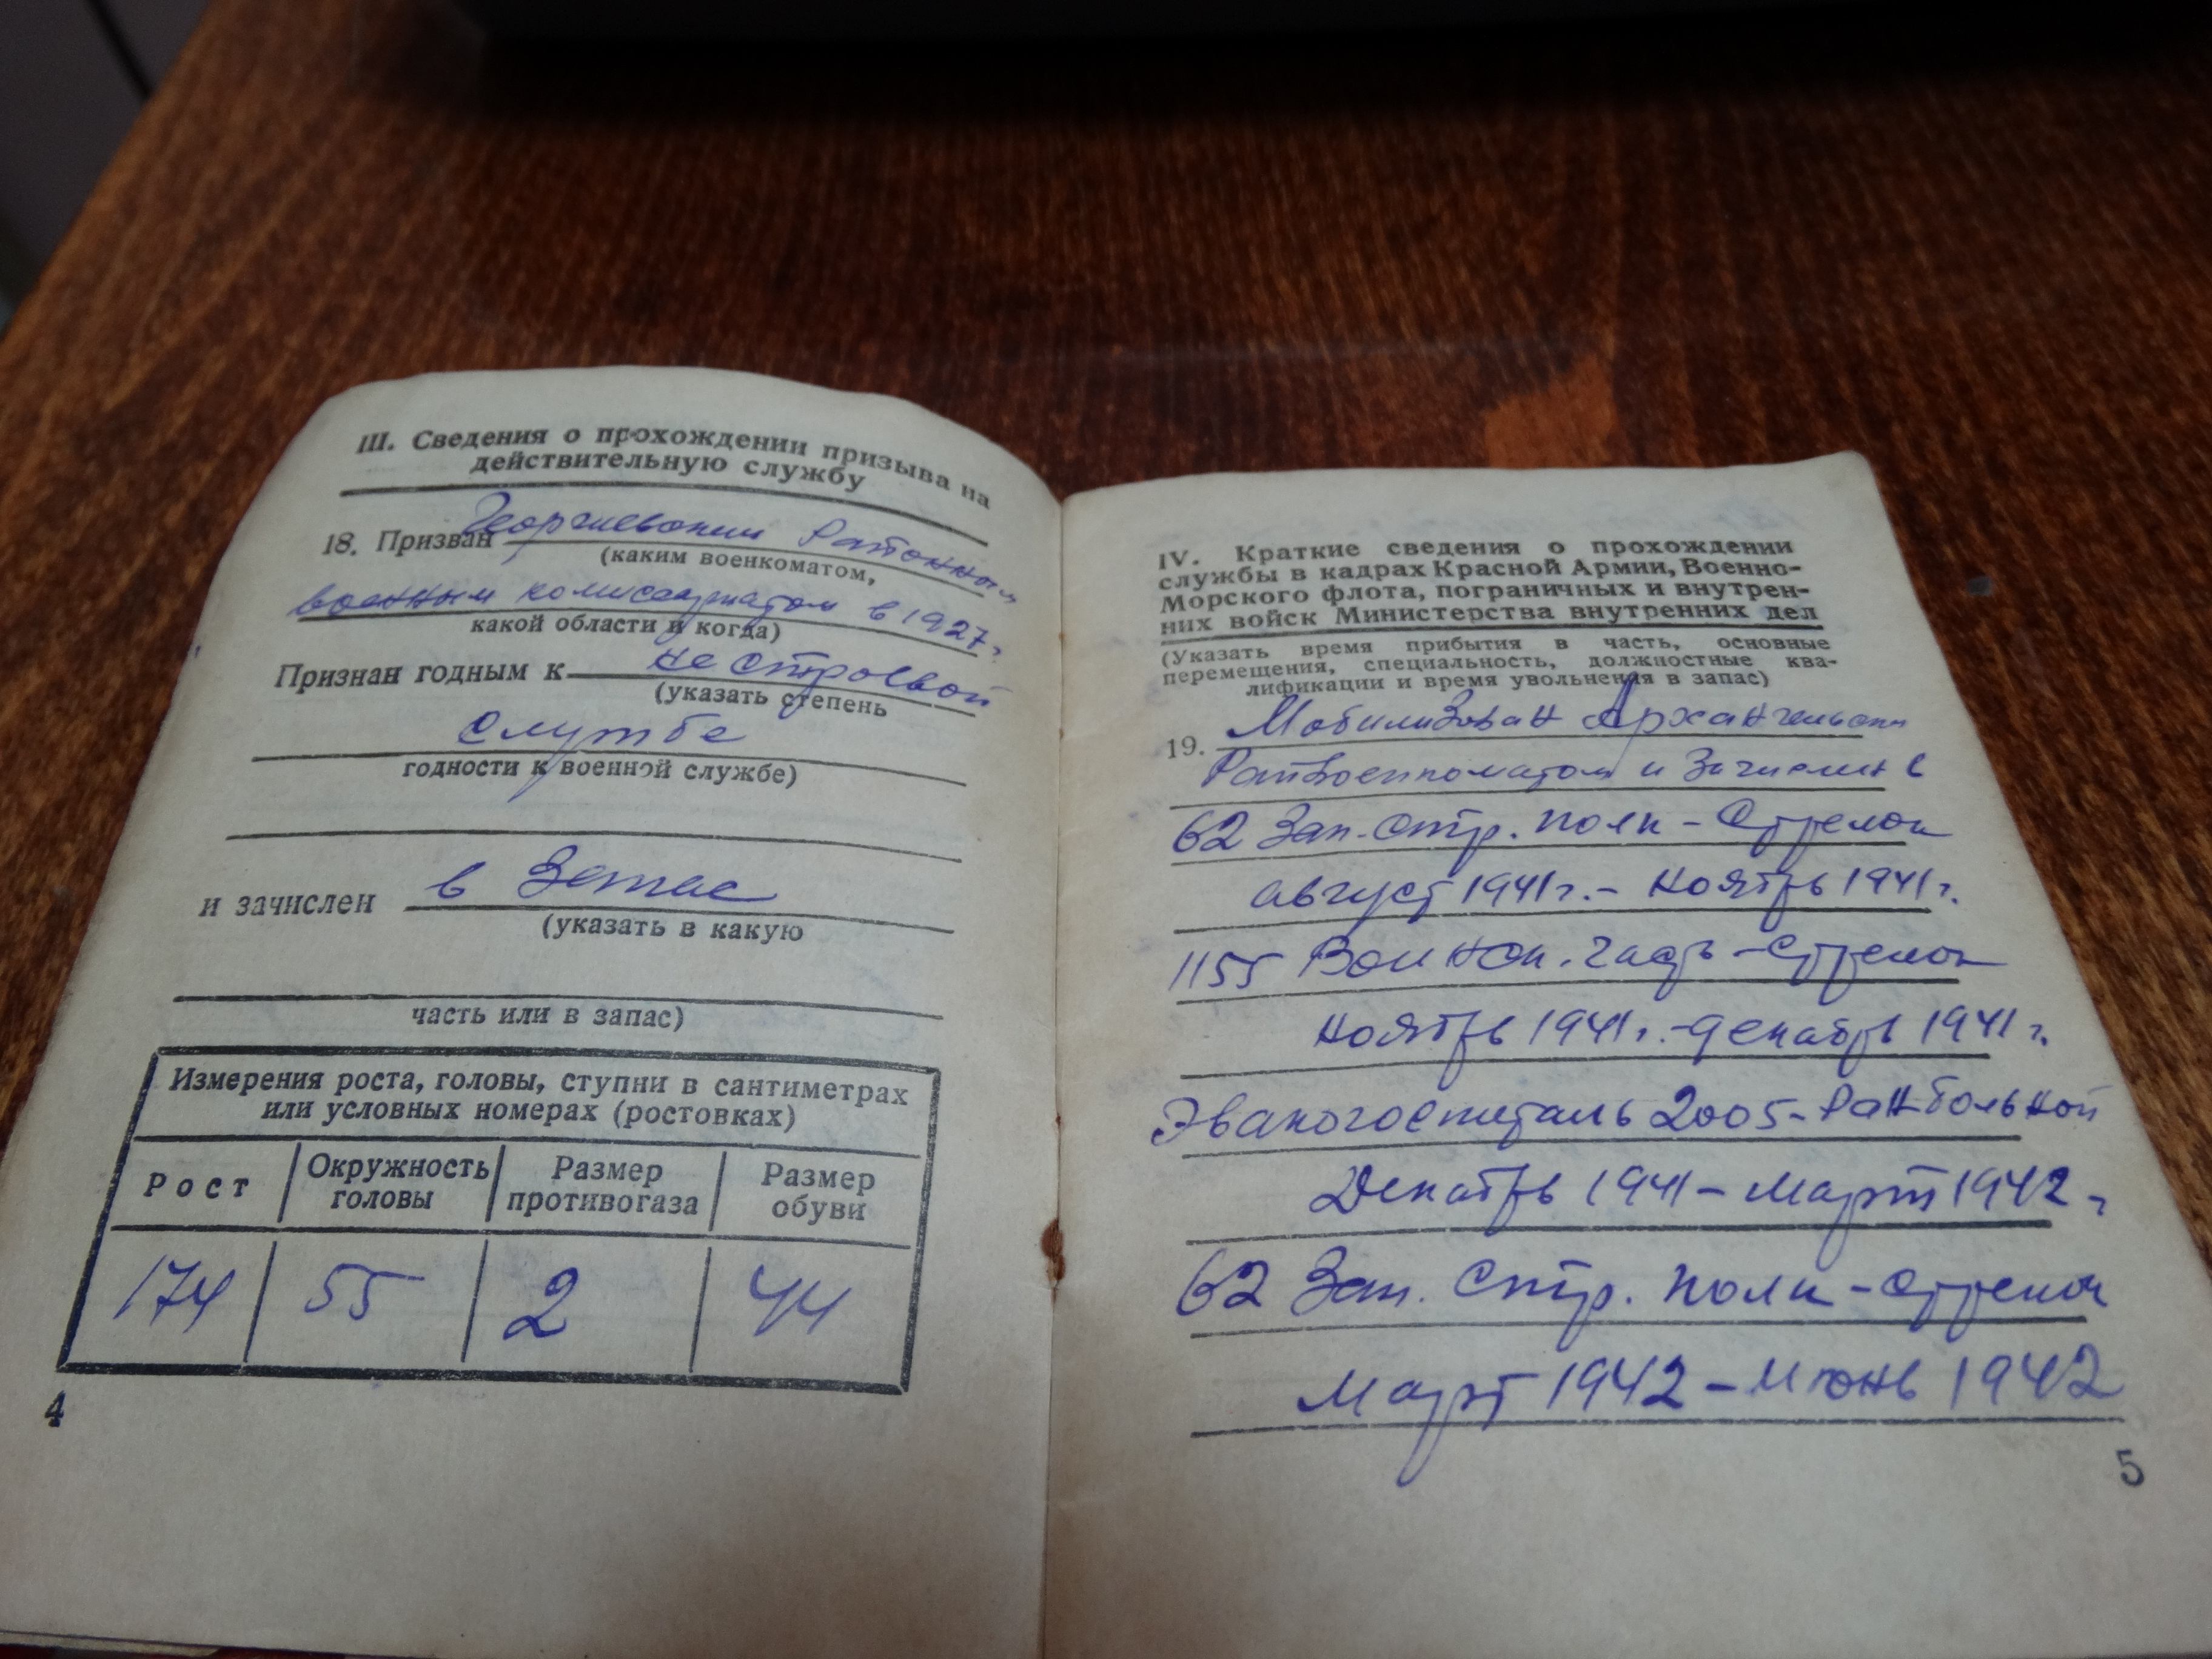 III. Сведения о прохождении призыва на
действительную службу
18. Призван Георгиевским Районным
(каким военкоматом,
военным комиссариатом в 1927 г.
какой области и когда)
Признан годным к не строевой
(указать степень
службе
годности к военной службе)
и зачислен в Запас
(указать в какую
часть или в запас)
Измерения роста, головы, ступни в сантиметрах
или условных номерах (ростовках)
Рост Окружность головы Размер противогаза Размер обуви
174 55 2 44
4
IV. Краткие сведения о прохождении
службы в кадрах Красной Армии, Военно-
Морского флота, пограничных и внутрен-
них войск Министерства внутренних дел
(Указать время прибытия в часть, основные
перемещения, специальность, должностные ква-
лификации и время увольнения в запас)
19. Мобилизован Архангельским
Райвоенкоматом и Зачислен в
62 Зап. стр. полк - Стрелок
август 1941 г. - Ноябрь 1941 г.
1155 Воинск. часть - Стрелок
Ноябрь 1941 г. - декабрь 1941 г.
Эвакогоспиталь 2005 - Ранбольной
Декабрь 1941 - Март 1942 г
62 Зап. Стр. полк - Стрелок
Март 1942 - Июнь 1942
5